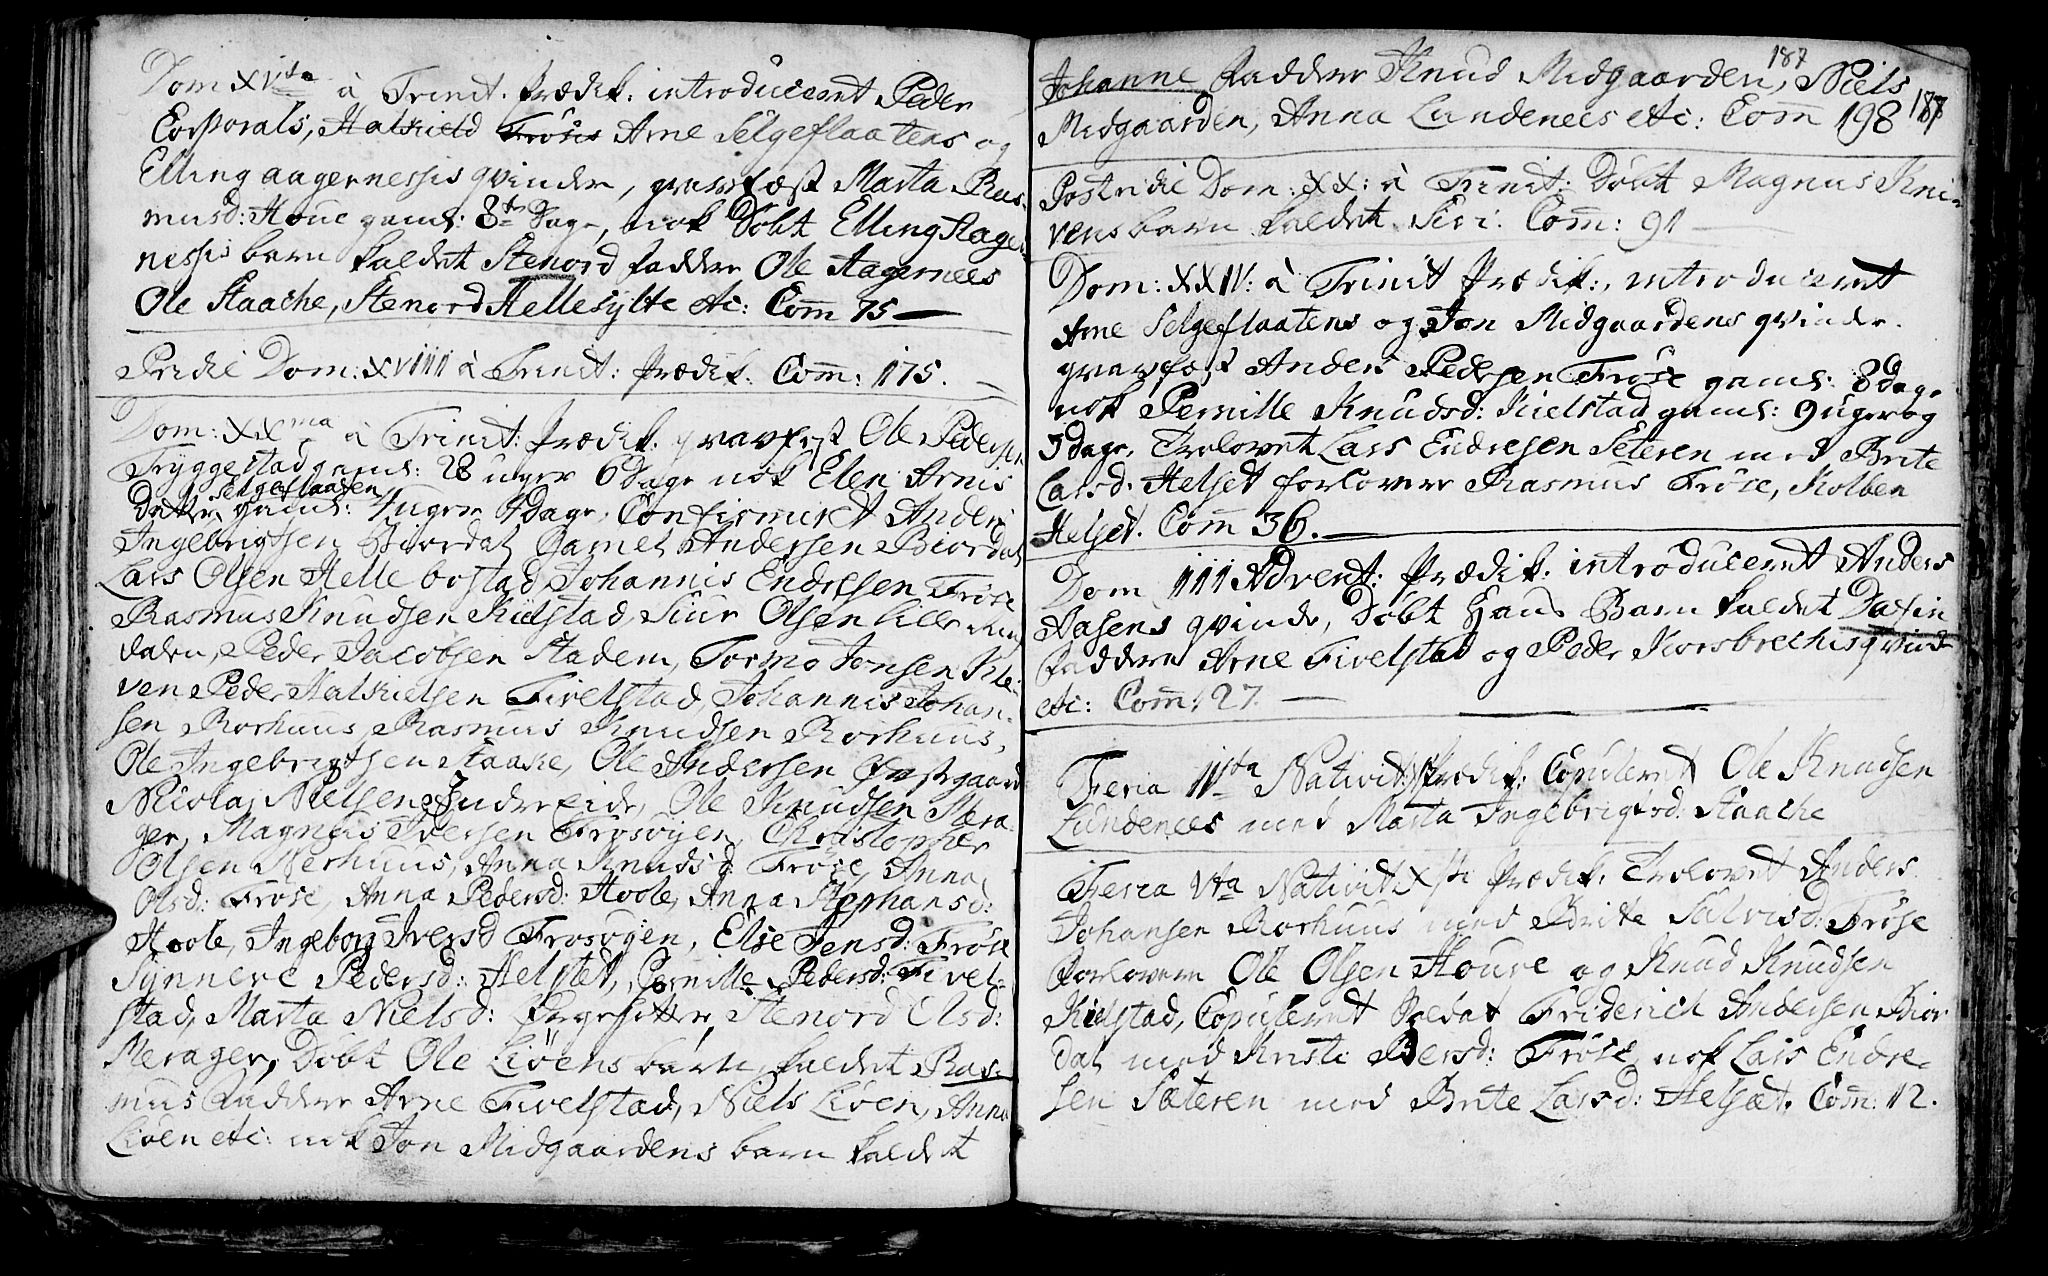 Dom XVIta à Trinit. Prædik: introduceret Peder
Corporals, Halkield Frøses Arne Selgeflaatens og
Elling aagernessis qvinder, gravfæst Marta Ras-
musd: Houc gaml: 8te Dage, nok Døbt Elling Aager
nessis barn kaldet Stenord faddere Ole Aagernees
Ole Staache, Stenord Hellesylte etc: Com̅ 75 —
Pridie Dom: XVIIII à Trinit: Prædik: Com̅: 175.
Dom: XXma à Trinit: Prædik: gravfæst Ole Pedersen
Tryggestad gaml: 28 uger 6 Dage nok Elen Arnis
Datter Selgeflaaten gaml: uger Dage, Confirmeret Anders
Ingebrigtsen Biordal Andersen Biordal
Lars Olsen Hellebostad, Johannis Endresen Frøse
Rasmus Knudsen Kielstad, Olsen lille
dalen, Peder Jacobsen Stadem, Tormo Jonsen Kle-
ven Peder Halkielsen Fivelstad, Johannis Johan-
sen Rorhuus Rasmus Knudsen Rorhuus,
Ole Ingebrigtsen Staache, Ole Andersen
Nicolaj Nielsen Indreeide, Ole Knudsen Mera-
ger, Magnus Iversen Frøsøjen, Christopher
Olsen Nerhuus, Anna Knudsd Frøse, Anna
Olsd: Frøse, Anna Pedersd: Hoole, Anna Stephansd:
Hoole, Ingeborg Iversd Frøsøgen, Else Jensd: Frøse
Synneve Pedersd: Helset, Pernille Pedersd: Fivel-
stad, Marta Nielsd: Stenord Olsd:
Merager, Døbt Ole Liøens barn kaldet Ras-
mus Faddere Arne Fivelstad, Niels Liøen, Anna
Liøen etc: nok Jon Midgaardens barn kaldet
187
Johanne Faddere Knud Midgaarden, Niels
Midgaarden, Anna Lundenees etc: Com̅ 198 188
Postridie Dom: XX: à Trinit: Døbt Magnus Kni-
vens barn kaldet Siri: Com̅: 91
Dom: XXIV: à Trinit Prædik:, introduceret
Arne Selgeflaatens og Jon Midgaardens qvinder.
gravfæst Anders Pedersen Frøse gaml: 8 Dage
nok Pernille Knudsd: Kielstad gaml: 9 uger og
3 Dage, Trolovet Lars Endresen Seteren med Brite
Larsd: Helset forlovere Rasmus Frøse, Kolben
Helset. Com̅ 36. —
Dom III Advent: Prædik: introduceret Anders
Aasens qvinde, Døbt Hans Barn kaldet Daffin
Faddere Arne Fivelstad og Peder Korsbrechis qvinde
etc: Com̅: 27. —
Feria IIda Nativit: Prædik: Copuleret Ole Knudsen
Lundenees med Marta Ingebrigtsd: Staache
Feria Vta Nativit Xsti Prædik: Trolovet Anders
Johansen Rorhuus med Brite Frøse
forlovere Ole Olsen Houce og Knud Knudsen
Kielstad, Copuleret Soldat Friderich Andersen Bior
dal med Kristi Frøse, nok Lars Endre-
sen Sæteren med Brite Larsd: Helsæt. Com̅: 12.